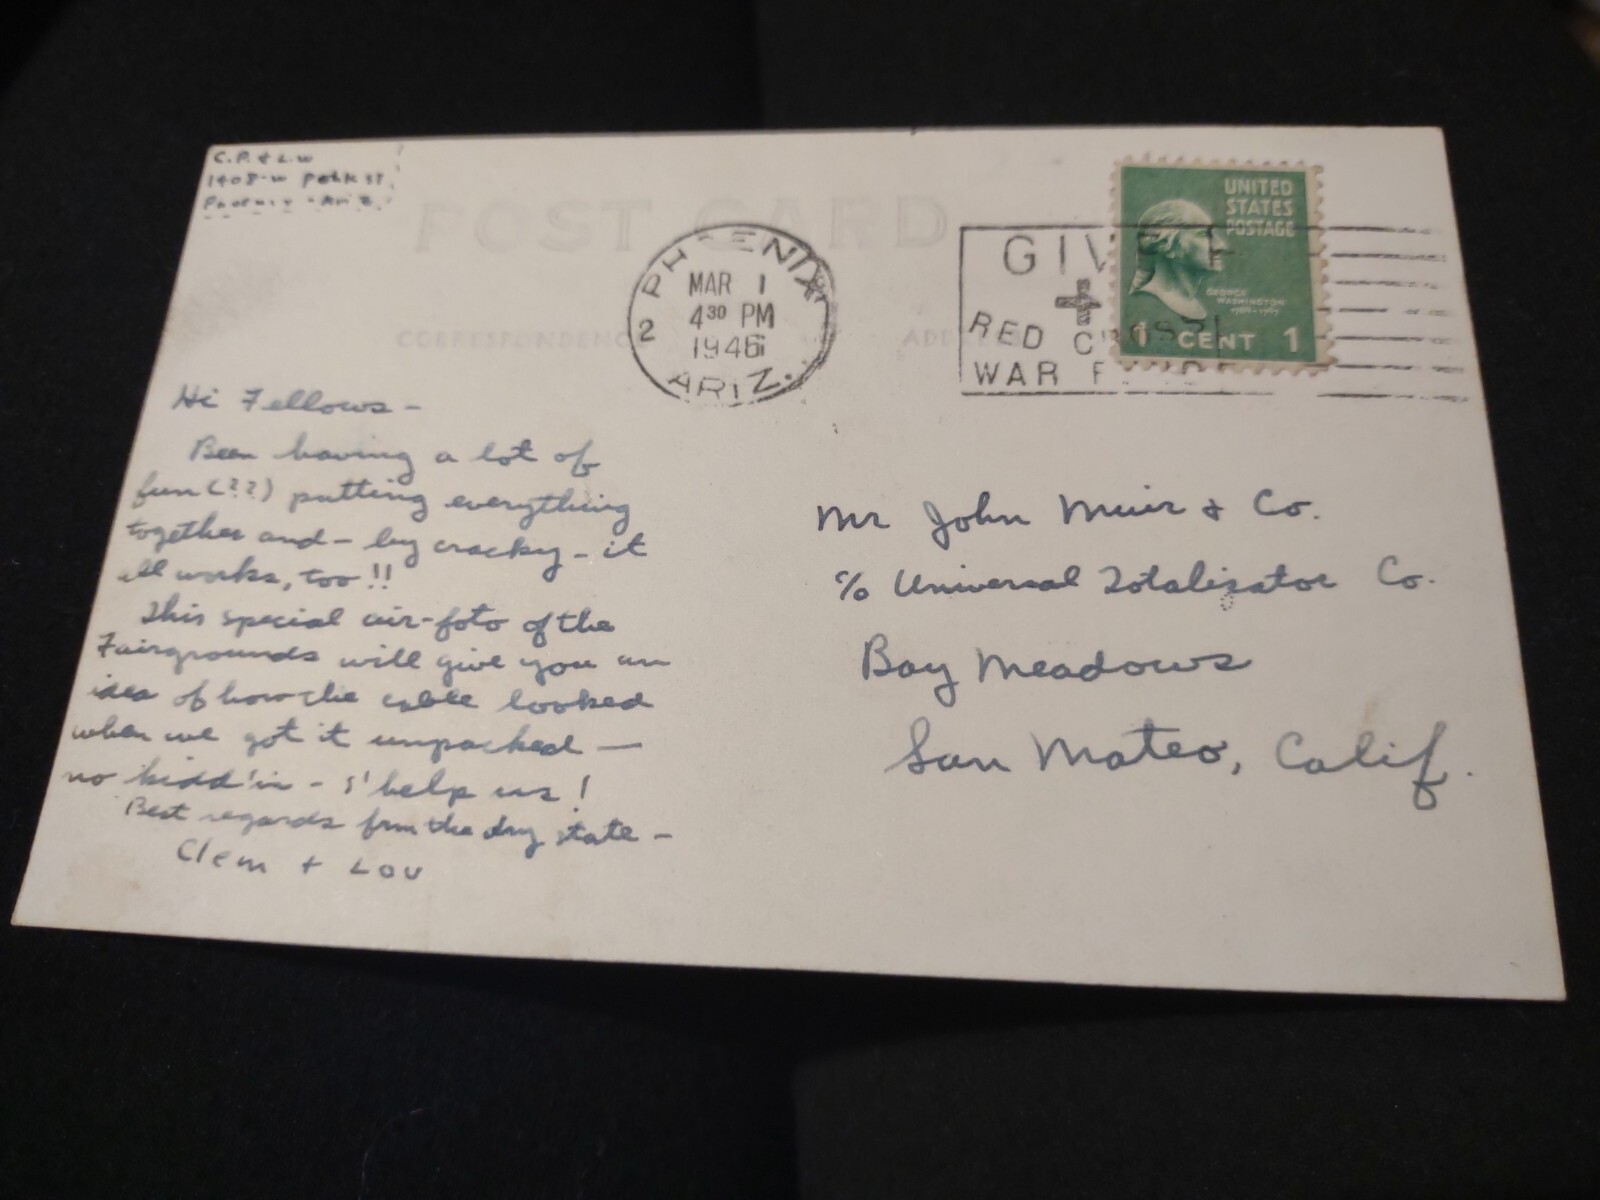 C.P. & L.W
1408-W Polk St.
Phoenix - Ariz.
POST CARD
PHOENIX
MAR 1
4 30 PM
1946
2
ARIZ.
GIVE
RED CROSS
WAR FUND
UNITED
STATES
POSTAGE
GEORGE
WASHINGTON
1 CENT 1
CORRESPONDENCE
ADDRESS
Hi Fellows -
Been having a lot of
fun (??) putting everything
together and - by cracky - it
all works, too!!
This special air-foto of the
Fairgrounds will give you an
idea of how the cable looked
when we got it unpacked —
no kidd'in - s'help us!
Best regards from the dry state -
Clem + Lou
Mr John Muir & Co.
c/o Universal Totalisator Co.
Bay Meadows
San Mateo, Calif.